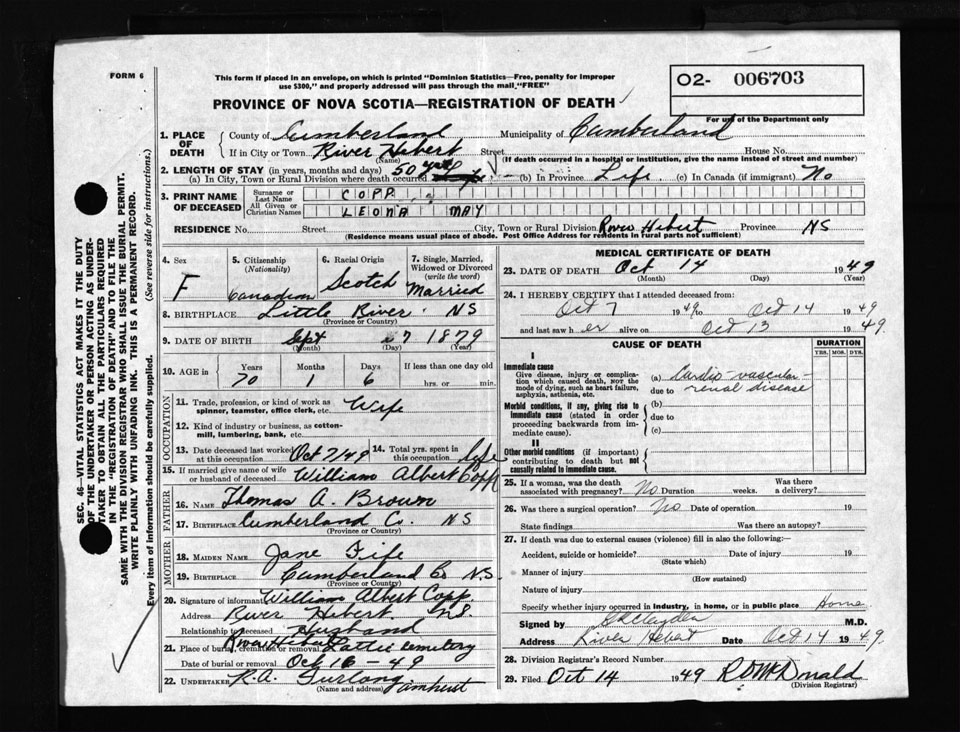 FORM 6
This form if placed in an envelope, on which is printed "Dominion Statistics—Free, penalty for improper
use $300," and properly addressed will pass through the mail "FREE"
O2- 006703
For use of the Department only
PROVINCE OF NOVA SCOTIA—REGISTRATION OF DEATH
SEC. 46—VITAL STATISTICS ACT MAKES IT THE DUTY
OF THE UNDERTAKER OR PERSON ACTING AS UNDER-
TAKER TO OBTAIN ALL THE PARTICULARS REQUIRED
IN THE "REGISTRATION OF DEATH" AND TO FILE THE
SAME WITH THE DIVISION REGISTRAR WHO SHALL ISSUE THE BURIAL PERMIT.
WRITE PLAINLY WITH UNFADING INK. THIS IS A PERMANENT RECORD.
Every item of information should be carefully supplied. (See reverse side for instructions.)
1. PLACE OF DEATH County of Cumberland Municipality of Cumberland
If in City or Town River Hebert Street House No.
(Name) (If death occurred in a hospital or institution, give the name instead of street and number)
2. LENGTH OF STAY (in years, months and days) 50 yrs
(a) In City, Town or Rural Division where death occurred (b) In Province Life (c) In Canada (if immigrant) No
3. PRINT NAME OF DECEASED Surname or Last Name COPP
All Given or Christian Names LEONA MAY
RESIDENCE No. Street City, Town or Rural Division River Hebert Province NS
(Residence means usual place of abode. Post Office Address for residents in rural parts not sufficient)
4. Sex F
5. Citizenship (Nationality) Canadian
6. Racial Origin Scotch
7. Single, Married, Widowed or Divorced (write the word) Married
8. BIRTHPLACE Little River NS
(Province or Country)
9. DATE OF BIRTH Sept 27 1879
(Month) (Day) (Year)
10. AGE in Years Months Days If less than one day old
70 1 6 hrs. or min.
OCCUPATION
11. Trade, profession, or kind of work as spinner, teamster, office clerk, etc. Wife
12. Kind of industry or business, as cotton-mill, lumbering, bank, etc.
13. Date deceased last worked at this occupation Oct 7/49 14. Total yrs. spent in this occupation Life
15. If married give name of wife or husband of deceased William Albert Copp
FATHER
16. Name Thomas A. Brown
17. Birthplace Cumberland Co. NS
(Province or Country)
MOTHER
18. Maiden Name Jane Fife
19. Birthplace Cumberland Co NS.
(Province or Country)
20. Signature of informant William Albert Copp.
Address River Hebert N.S.
Relationship to deceased Husband
21. Place of burial, cremation or removal River Hebert Cemetery
Date of burial or removal Oct 16 - 49
22. UNDERTAKER R.A. Furlong Amherst
(Name and address)
MEDICAL CERTIFICATE OF DEATH
23. DATE OF DEATH Oct 14 1949
(Month) (Day) (Year)
24. I HEREBY CERTIFY that I attended deceased from:
Oct 7 1949 to Oct 14 1949
and last saw her alive on Oct 13 1949.
CAUSE OF DEATH DURATION
YRS. MOS. DYS.
I
Immediate cause
Give disease, injury or complication which caused death, NOT the mode of dying, such as heart failure, asphyxia, asthenia, etc.
(a) Cardio-vascular-
due to renal disease
Morbid conditions, if any, giving rise to immediate cause (stated in order proceeding backwards from immediate cause).
(b)
due to
(c)
II
Other morbid conditions (if important) contributing to death but not causally related to immediate cause.
25. If a woman, was the death associated with pregnancy? No Duration weeks. Was there a delivery?
26. Was there a surgical operation? No Date of operation 19
State findings Was there an autopsy?
27. If death was due to external causes (violence) fill in also the following:—
Accident, suicide or homicide? Date of injury 19
(State which)
Manner of injury
(How sustained)
Nature of injury
Specify whether injury occurred in industry, in home, or in public place Home
Signed by M.D.
Address River Hebert Date Oct 14 1949.
28. Division Registrar's Record Number
29. Filed Oct 14 1949 R D McDonald
(Division Registrar)